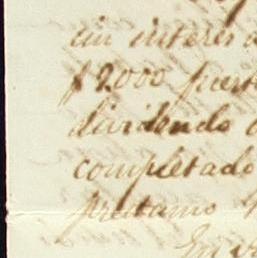 un interes
$2.000 fuert
dividendo
completado
prestamo